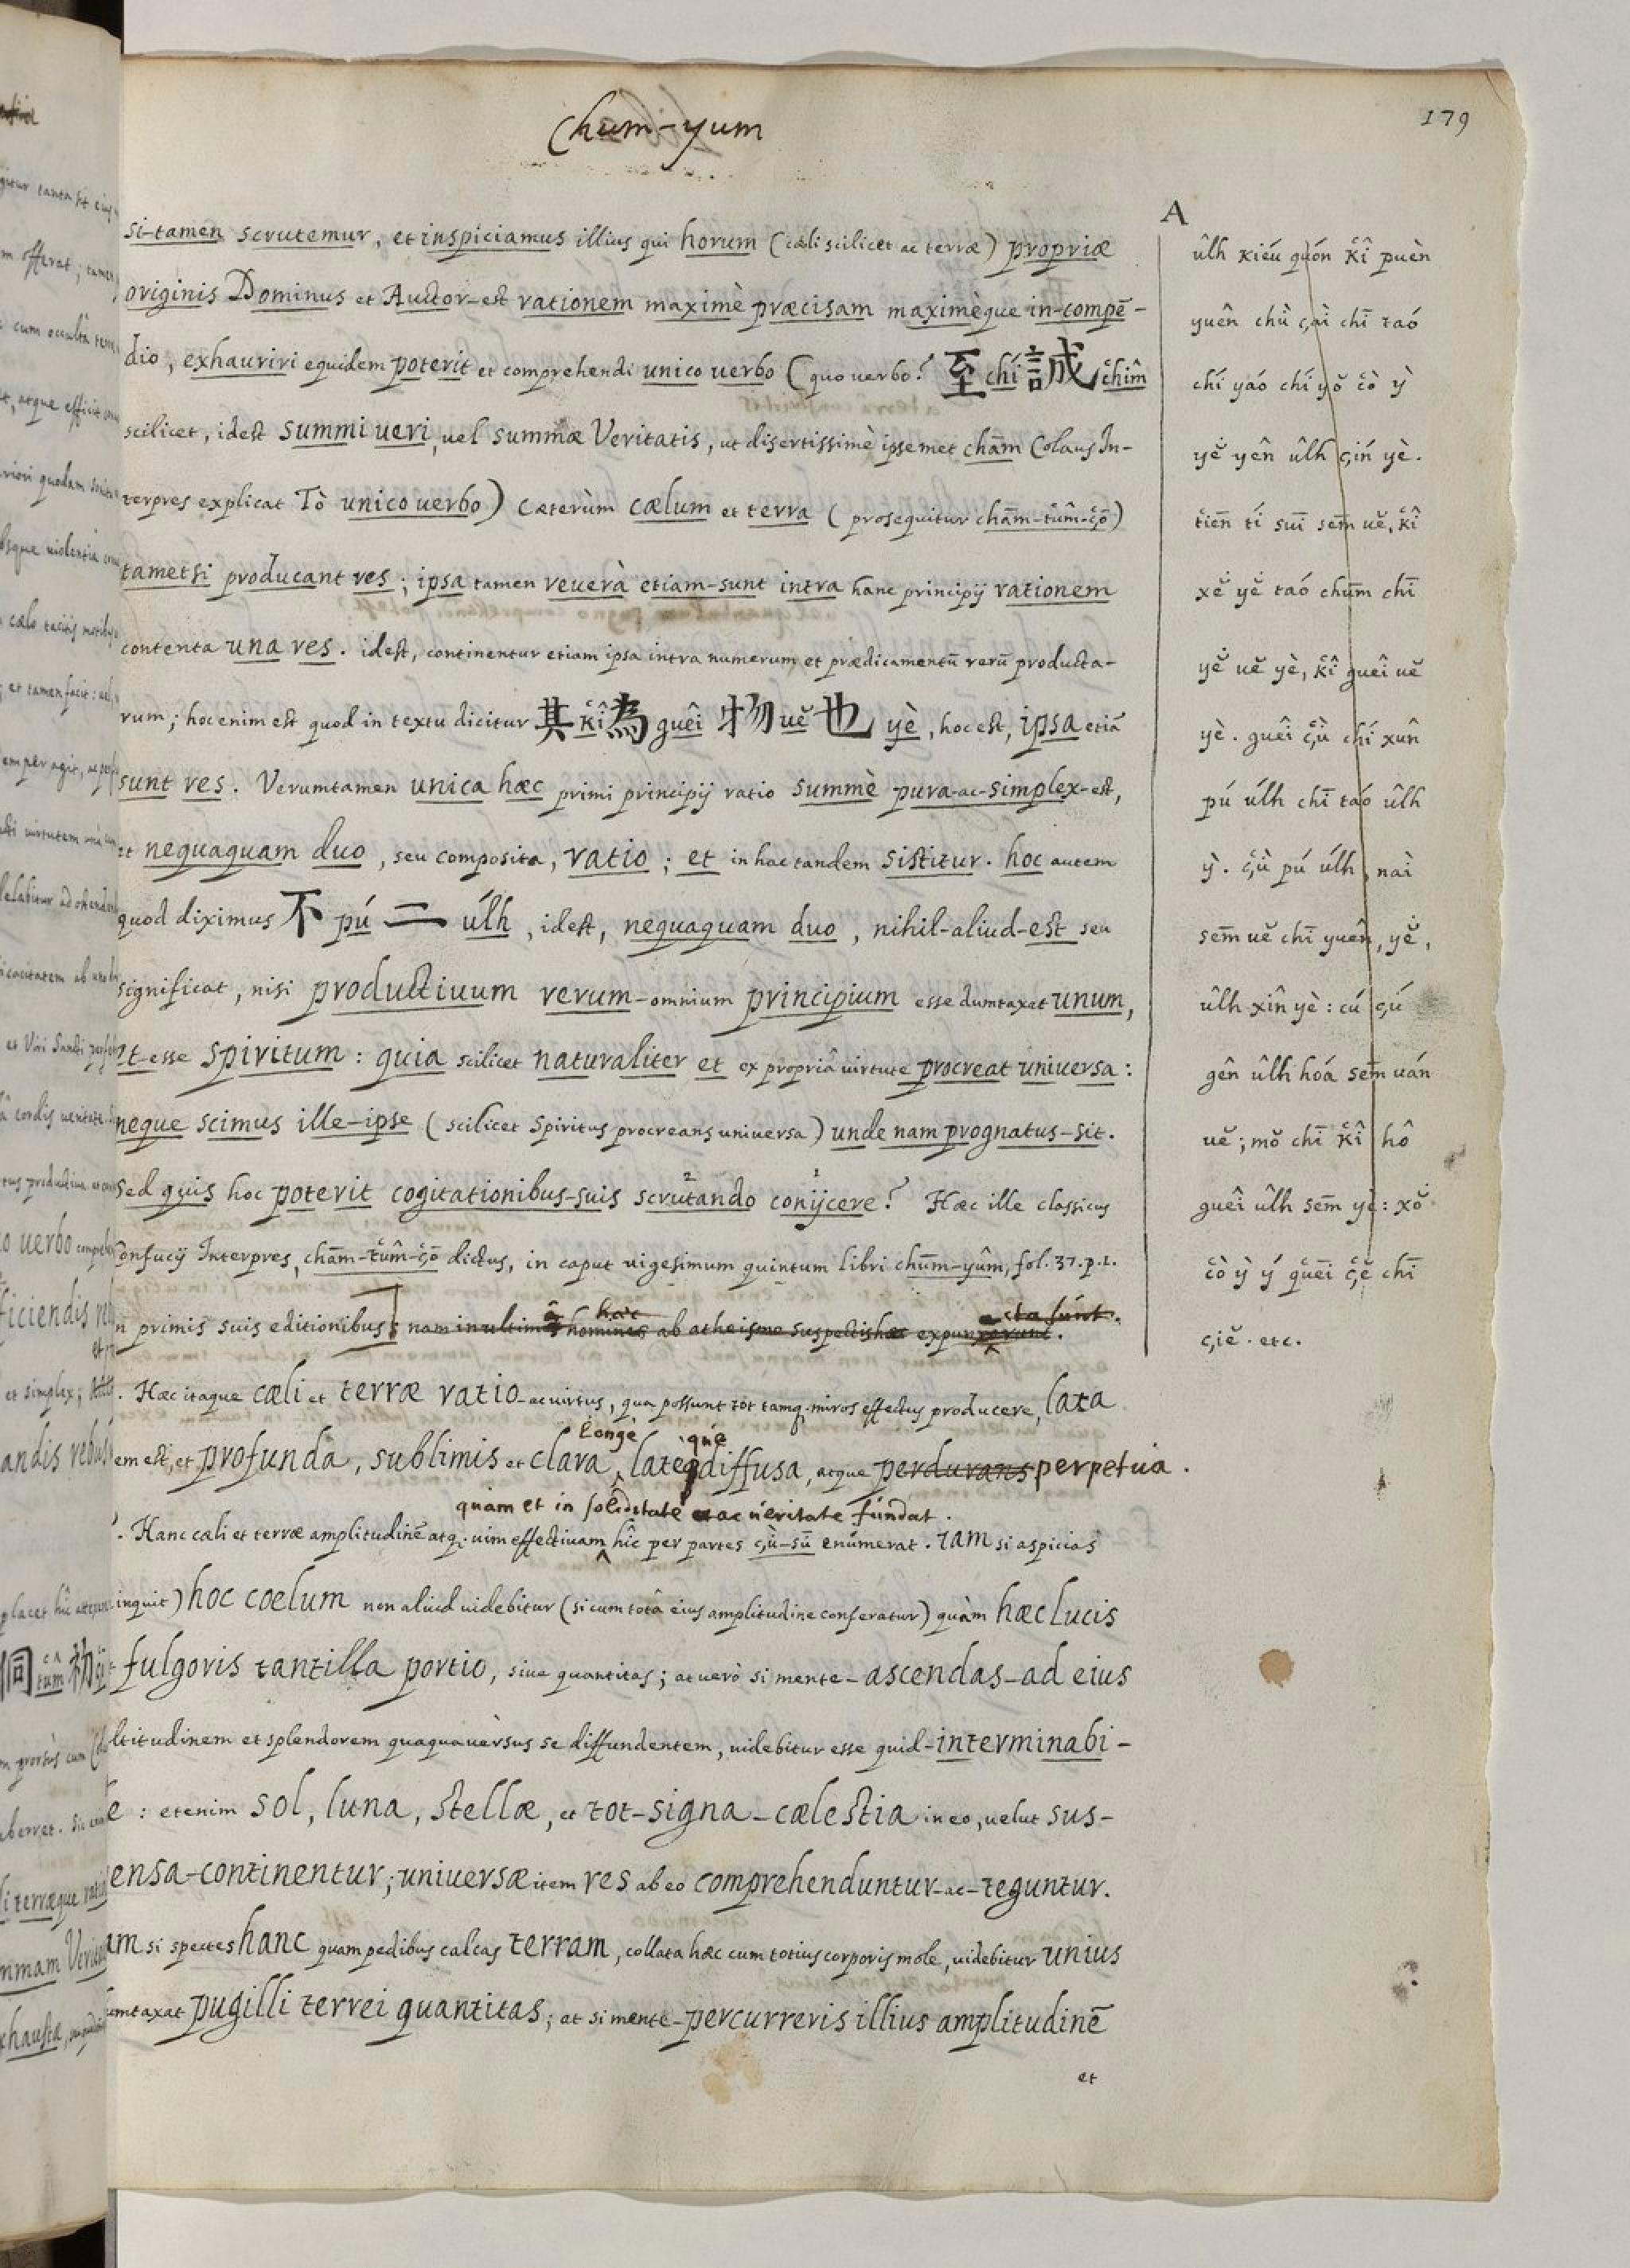 Chum-yum
179
si-tamen scrutemur, et inspiciamus illius qui horum (cæli scilicet ac terræ) propriæ
originis Dominus et Auctor-est rationem maximè præcisam maximèque in-compē-
dio, exhauriri equidem poterit et comprehendi unico verbo (quo verbo? 至 chí 誠 chîm
scilicet, idest summi veri, vel summæ Veritatis, ut disertissimè ipsemet chām Colaus In-
terpres explicat Tò unico verbo) Cæterùm cælum et terra (prosequitur chām-tûm-çō)
tametsi producant res; ipsa tamen reverà etiam-sunt intra hanc principij rationem
contenta una res. idest, continentur etiam ipsa intra numerum et prædicamentū rerū producta-
rum; hoc enim est quod in textu dicitur 其 kî 為 guêi 物 uĕ 也 yè, hoc est, ipsa etiā
sunt res. Verumtamen unica hæc primi principij ratio summè pura-ac-simplex-est,
et nequaquam duo, seu composita, ratio; et in hac tandem sistitur. hoc autem
quod diximus 不 pú 二 úlh, idest, nequaquam duo, nihil-aliud-est seu
significat, nisi productivum rerum-omnium principium esse dumtaxat unum,
Et-esse Spiritum: quia scilicet naturaliter et ex propriâ virtute procreat universa:
neque scimus ille-ipse (scilicet Spiritus procreans universa) unde nam prognatus-sit.
2 1
Sed quis hoc poterit cogitationibus-suis scrutando conijcere? Hæc ille classicus
Confucij Interpres, chām-tûm-çō dictus, in caput vigesimum quintum libri chūm-yûm, fol. 37. p. 1.
n primis suis editionibus] nam in ultimâ hæc homines ab atheismo suspectis hæc expun
cta sunt.
. Hæc itaque cæli et terræ ratio-ac virtus, qua possunt tot tamq. miros effectus producere, lata
longè què
em est, et profunda, sublimis et clara, lateq diffusa, atque perdurans perpetua.
quam et in soliditate ac veritate fundat.
. Hanc cæli et terræ amplitudinē atq. vim effectivam hîc per partes çù-sū enumerat. Iam si aspicias
inquit) hoc coelum non aliud videbitur (si cum totâ eius amplitudine conferatur) quàm hæc lucis
fulgoris tantilla portio, sive quantitas; at verò si mente-ascendas-ad eius
ltitudinem et splendorem quaquaversus se diffundentem, videbitur esse quid-interminabi-
e: etenim sol, luna, stellæ, et tot-signa-cælestia in eo, velut sus-
ensa-continentur; universæ item res ab eo comprehenduntur-ac-teguntur.
am si spectes hanc quam pedibus calcas terram, collata hæc cum totius corporis mole, videbitur unius
umtaxat pugilli terrei quantitas; at si mente-percurreris illius amplitudinē
et
A
ûlh kiéu quón kî puèn
yuên chù çài chī taó
chí yáo chí yŏ cò ỳ
yĕ yên ûlh çín yè.
tiēn tí sūi sēm uĕ, kî
xĕ yĕ taó chūm chī
yĕ uĕ yè, kî guêi uĕ
yè. guêi çù chí xûn
pú úlh chī taó ûlh
ỳ. çù pú úlh, nài
sēm uĕ chī yuên, yĕ,
ûlh xîn yè: cú çú
gên ûlh hóa sēm ván
uĕ; mŏ chī kî hô
guêi ûlh sēm yè: xŏ
cò ỳ ý quēi çĕ chī
çiĕ. etc.